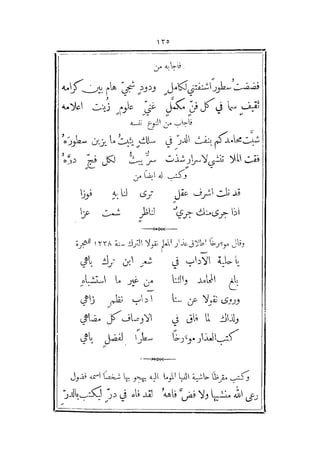 ١٣٥
فاجابه من
فضضتُ سطوراً شنفتني لكاملٍ ودودٍ شجيّ هام بين كرامه
ثقيفٍ سما في كل فنّ مكمّلٍ غنيّ علومٍ زُينت اعلامه
فاجاب من النوع نفسه
شبَّت محامدكم بنفث الدرّ في سلكٍ يثبتُ ما يزين سطورَهُ
فقت الملا تفشي لاسرارٍ شذت سرٌّ يبثُّ لكل فجّ درَّهُ
وكتب له ايضاً من
قد نلت اشرف عقلٍ ترى لنا به فوزا
اذا جرى منك جريٌ لناظرٍ شمت عزا
وقال مورخاً اطلاق عذار المعلم نقولا الترك سنة ١٢٣٨ للهجرة
يا حلية الآداب في شعر ابن ترك باهي
بلغ المحامد والثنا من غير ما استشباهِ
وروى نقولا عن سنا آداب نظمٍ زاهي
ولذاك لما فاق في الاوصاف كل مضاهي
كتب العذار مورخاً سطراً لفضلٍ باهي
وكتب مقرظاً حاشية الفها الموما اليه يهجو بها شخصاً اسمه فضول
رعى الله منشيها ولا فضَّ فاههُ لقد فاه في درّ ليكتب بالدرّ